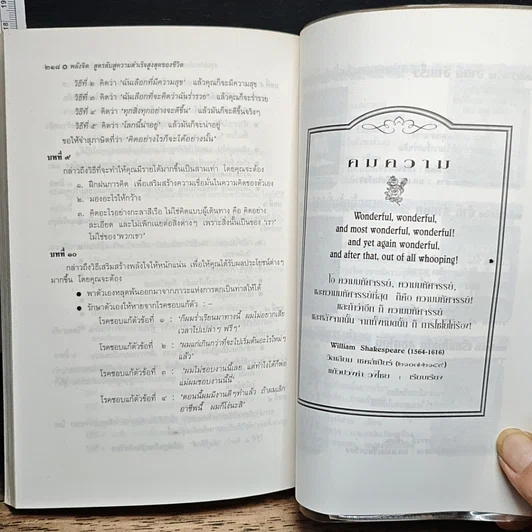 ๒๑๘ ๐ พลังจิต สูตรลับสู่ความสำเร็จสูงสุดของชีวิต
วิธีที่ ๒ คิดว่า 'ฉันเลือกที่มีความสุข' แล้วคุณก็จะมีความสุข
วิธีที่ ๓ คิดว่า 'ฉันเลือกที่จะคิดว่าฉันร่ำรวย' แล้วคุณก็จะร่ำรวย
วิธีที่ ๔ คิดว่า 'ทุกสิ่งทุกอย่างจะดีขึ้น' แล้วมันก็จะดีขึ้นจริงๆ
วิธีที่ ๕ คิดว่า 'โลกนี้น่าอยู่' แล้วมันก็จะน่าอยู่
ขอให้จำสุภาษิตที่ว่า 'คิดอย่างไรก็จะได้อย่างนั้น'
บทที่ ๙
กล่าวถึงวิธีที่จะทำให้คุณมีรายได้มากขึ้นเป็นสามเท่า โดยคุณจะต้อง
๑. ฝึกฝนการคิด เพื่อเสริมสร้างความเชื่อมั่นในความคิดของตัวเอง
๒. มองอะไรให้กว้าง
๓. คิดอะไรอย่างกะลาสีเรือ ไม่ใช่คิดแบบผู้เดินทาง คือ คิดอย่าง
ละเอียด และไม่เพิกเฉยต่อสิ่งต่างๆ เพราะสิ่งนั้นเป็นของ 'เรา'
ไม่ใช่ของ'พวกเขา'
บทที่ ๑๐
กล่าวถึงวิธีเสริมสร้างพลังใจให้หนักแน่น เพื่อให้คุณได้รับผลประโยชน์ต่างๆ
มากขึ้น โดยคุณจะต้อง
● พาตัวเองหลุดพ้นออกมาจากภาวะแห่งการตกเป็นทาสให้ได้
● รักษาตัวเองให้หายจากโรคชอบแก้ตัว : –
โรคชอบแก้ตัวข้อที่ ๑ : 'ก็ผมร่ำเรียนมาทางนี้ ผมไม่อยากเสีย
เวลาไปเปล่าๆ ฟรีๆ'
โรคชอบแก้ตัวข้อที่ ๒ : 'ผมแก่เกินกว่าที่จะไปเริ่มต้นอะไรใหม่ๆ
แล้ว'
โรคชอบแก้ตัวข้อที่ ๓ : 'ผมไม่ชอบงานนี้เลย แต่ทำไงได้ก็พ่อ
แม่ผมชอบงานนี้นี่'
โรคชอบแก้ตัวข้อที่ ๔ : 'ตอนนี้ผมมีงานดีๆทำแล้ว ถ้าผมเลิก
อาชีพนี้ ผมก็โง่นะสิ'
คมความ
Wonderful, wonderful,
and most wonderful, wonderful!
and yet again wonderful,
and after that, out of all whooping!
โอ ความมหัศจรรย์, ความมหัศจรรย์,
และความมหัศจรรย์ที่สุด ก็คือ ความมหัศจรรย์!
และถ้าว่าอีก ก็ ความมหัศจรรย์
และหลังจากนั้น จากทั้งหมดนั้น ก็ การโห่ร้องไชโย!
William Shakespeare (1564-1616)
วิลเลียม เชคสเปียร์
: เรียบเรียง